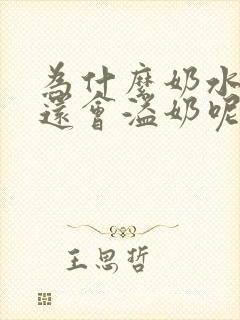 為什麼奶水
還會溢奶呢
王思哲